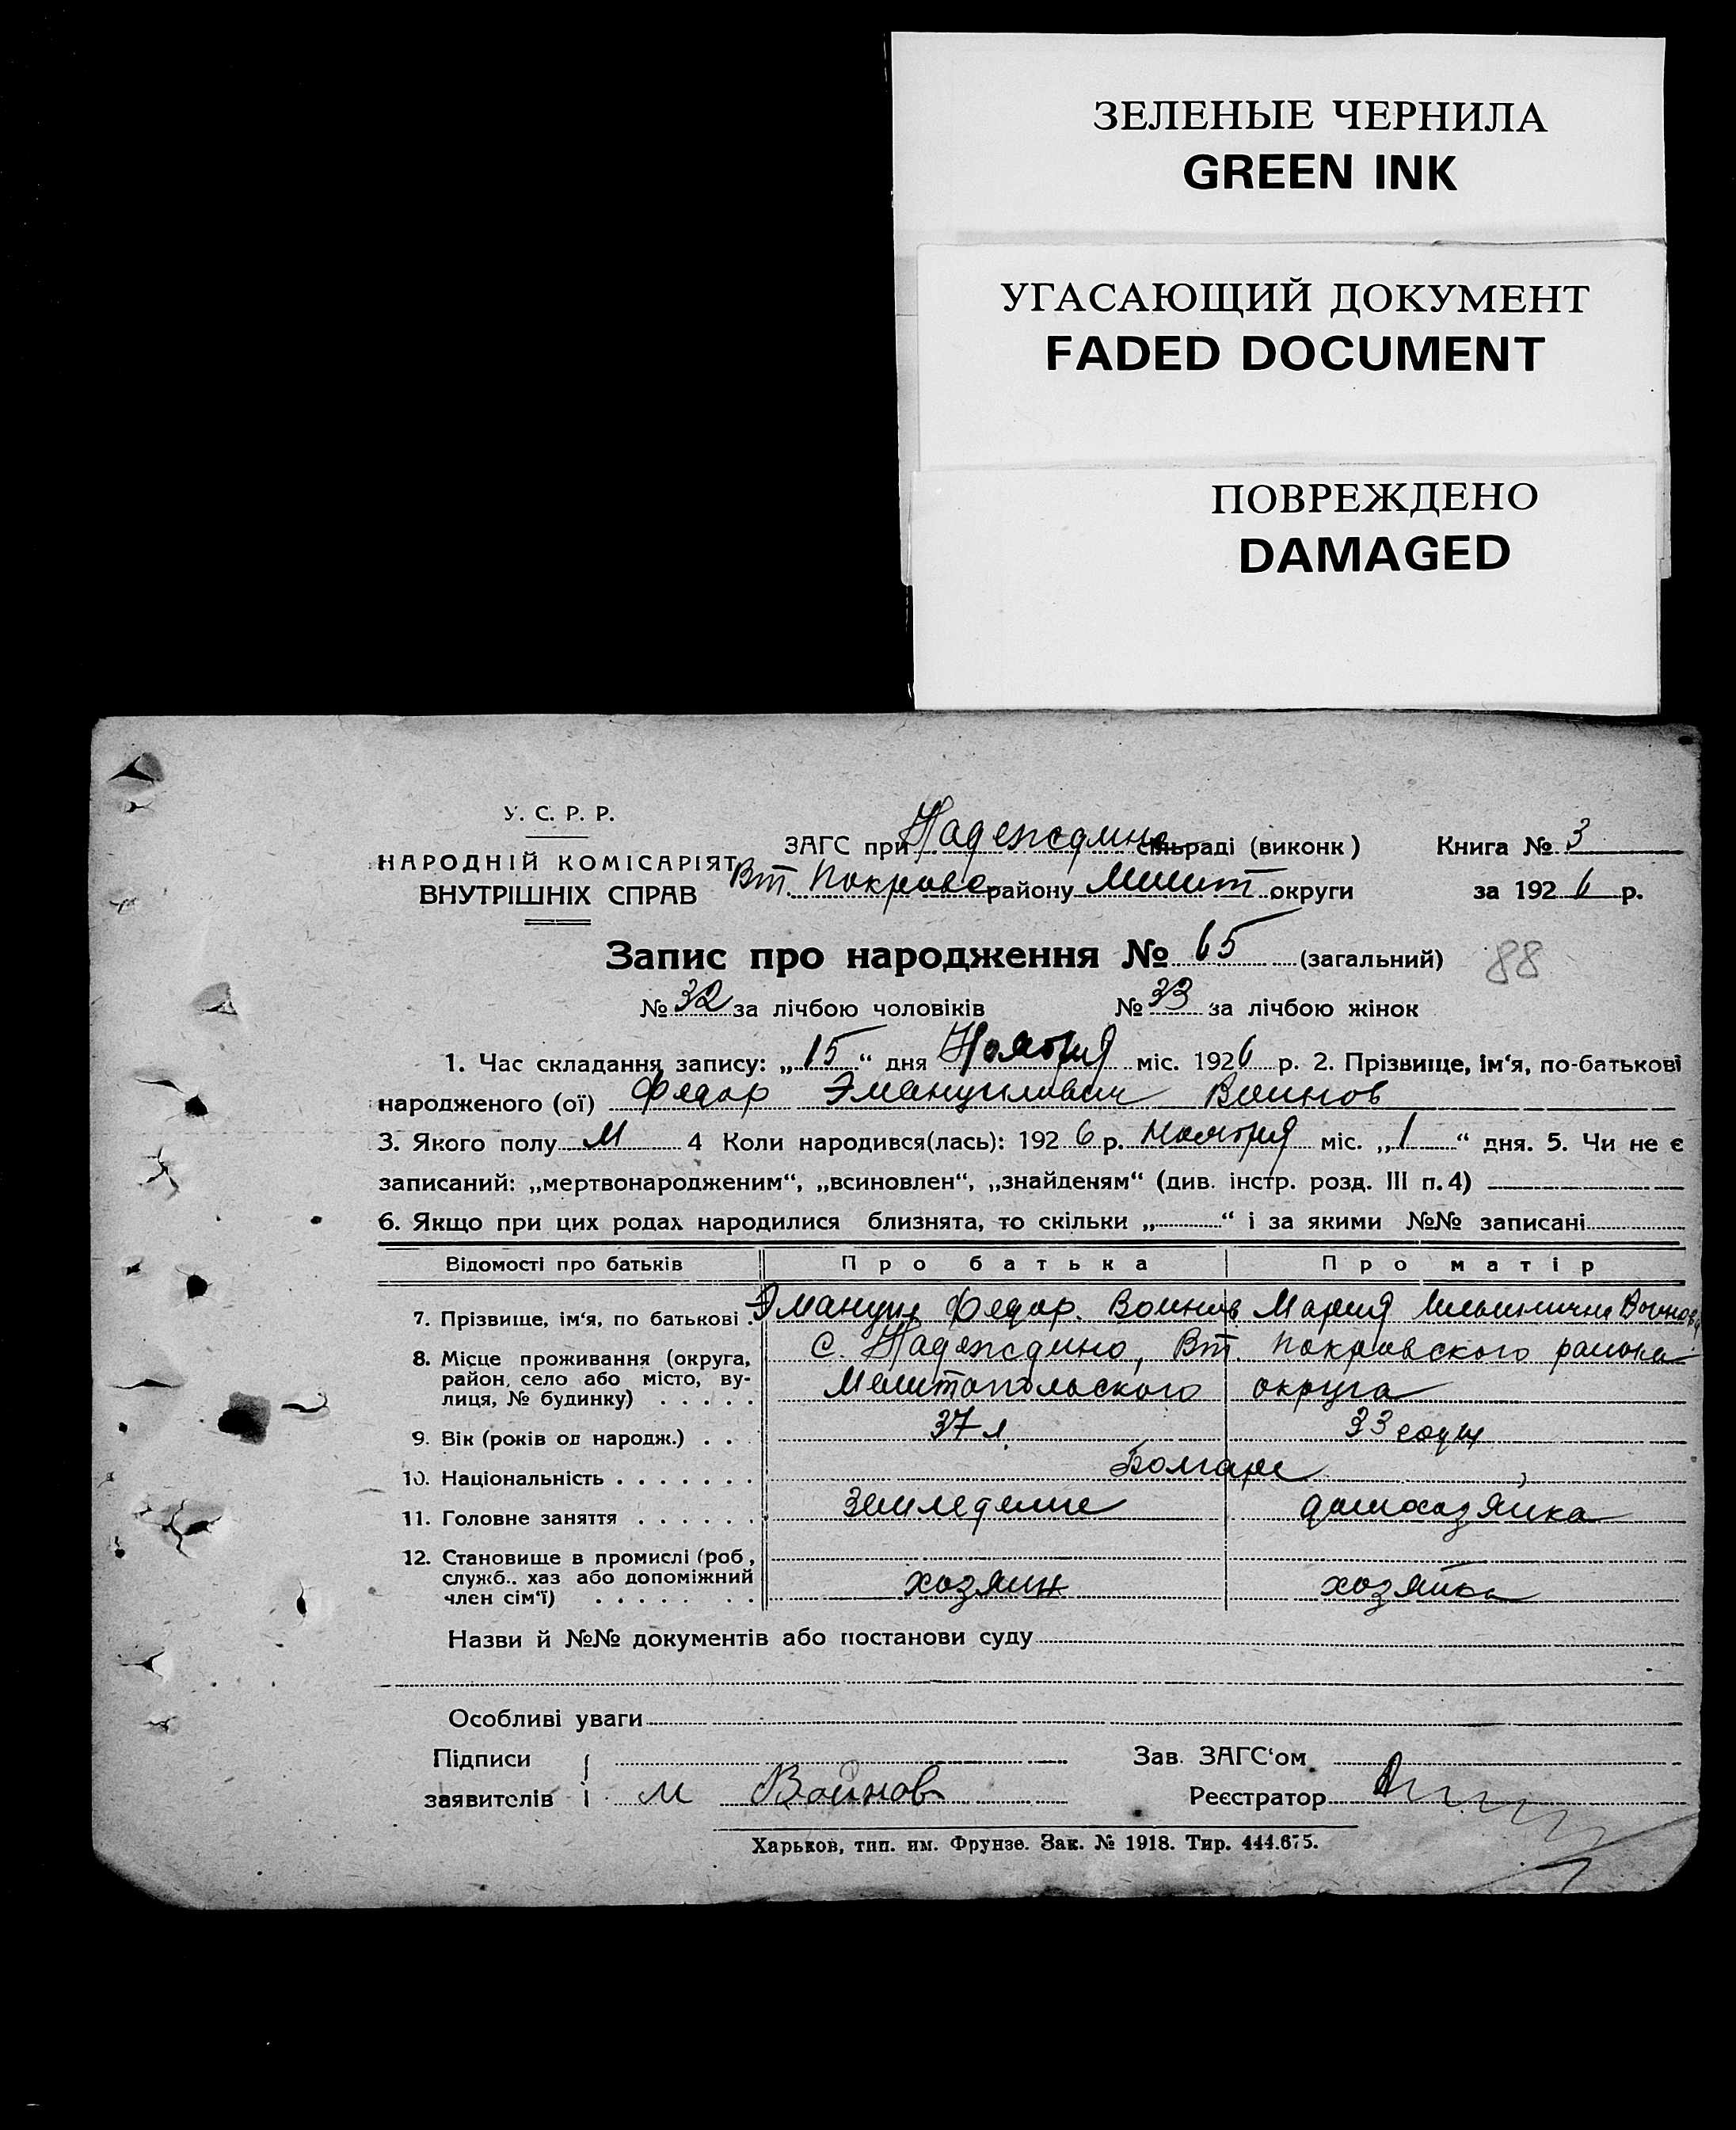 ЗЕЛЕНЫЕ ЧЕРНИЛА
GREEN INK
УГАСАЮЩИЙ ДОКУМЕНТ
FADED DOCUMENT
ПОВРЕЖДЕНО
DAMAGED
У. С. Р. Р.
НАРОДНІЙ КОМІСАРІЯТ
ВНУТРІШНІХ СПРАВ
ЗАГС при Надеждино сільраді (виконк) Книга № 3
Вт. Покровс району Мелит округи за 1926 р.
Запис про народження № 65 (загальний) 88
№ 32 за лічбою чоловіків № 33 за лічбою жінок
1. Час складання запису: „15“ дня Ноября міс. 1926 р. 2. Прізвище, ім‘я, по-батькові
народженого (ої) Федор Эмануилович Воинов
3. Якого полу М 4 Коли народився(лась): 1926 р. Ноября міс. „1“ дня. 5. Чи не є
записаний: „мертвонародженим“, „всиновлен“, „знайденям“ (див. інстр. розд. III п. 4)
6. Якщо при цих родах народилися близнята, то скільки „ “ і за якими №№ записані
Відомості про батьків Про батька Про матір
7. Прізвище, ім‘я, по батькові Эмануил Федор. Воинов Мария Воинова
8. Місце проживання (округа, с. Надеждино, Вт. Покровского района
район, село або місто, ву-
лиця, № будинку) Мелитопольского округа
9. Вік (років од народж.) 37 л. 33 годи
10. Національність Болгаре
11. Головне заняття земледелие домохозяйка
12. Становище в промислі (роб,
служб.. хаз або допоміжний
член сім‘ї) хозяин хозяйка
Назви й №№ документів або постанови суду
Особливі уваги
Підписи Зав. ЗАГС‘ом
заявителів М Войнов Реєстратор
Харьков, тип. им. Фрунзе. Зак. № 1918. Тир. 444.675.